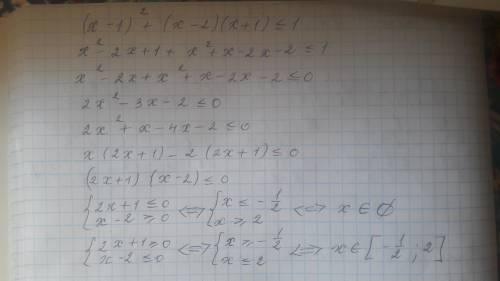 (x-1)² + (x-2)(x+1) ≤ 1
x² - 2x + 1 + x² + x - 2x - 2 ≤ 1
x² - 2x + x² + x - 2x - 2 ≤ 0
2x² - 3x - 2 ≤ 0
2x² + x - 4x - 2 ≤ 0
x(2x+1) - 2(2x+1) ≤ 0
(2x+1)(x-2) ≤ 0
{2x+1 ≤ 0 <=> {x ≤ -1/2 <=> x ∈ ∅
x-2 ≥ 0 x ≥ 2
{2x+1 ≥ 0 <=> {x ≥ -1/2 <=> x ∈ [-1/2; 2]
x-2 ≤ 0 x ≤ 2